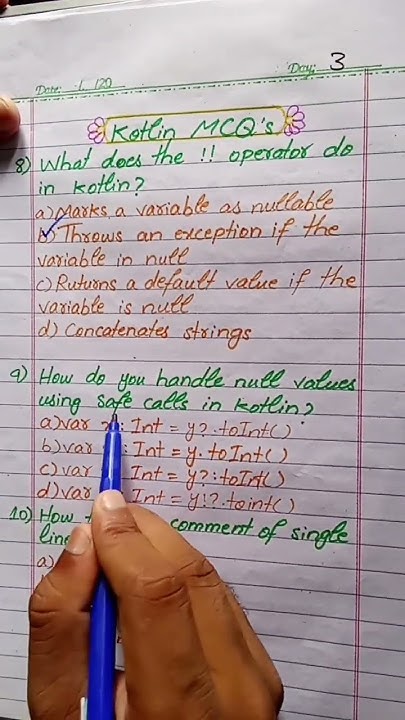 Day: 3
Date: 1 120
Kotlin MCQ's
8) What does the !! operator do
in kotlin?
a) Marks a variable as nullable
b) Throws an exception if the
variable in null
c) Ruturns a default value if the
variable is null
d) Concatenates strings
9) How do you handle null values
using safe calls in kotlin?
a) var : Int = y?.toInt()
b) var : Int = y.toInt()
c) var : Int = y?:toInt()
d) var Int = y!?.toint()
10) How comment of single
line
a)